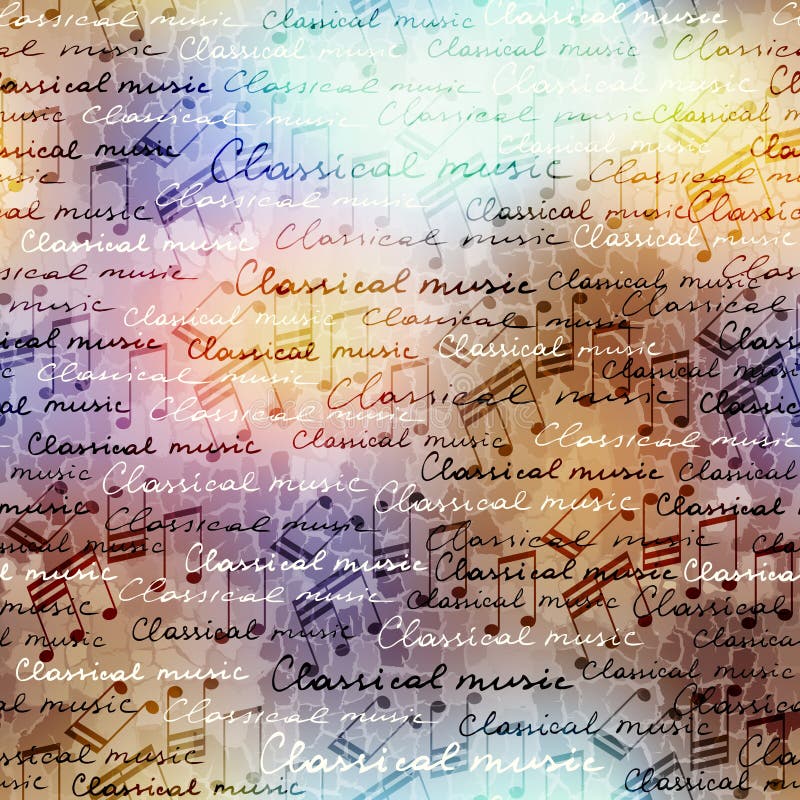 Classical music Classical
Classical music Classical music Classical
Classical music Classical music
Classical music Classical music
music Classical music Classical music Classical music
Classical music Classical music
Classical music Classical music Classical
Classical music Classical music
Classical music Classical music Classical music
Classical music Classical music Classical music
Classical music Classical music Classical
Classical music Classical music
music Classical music Classical music
Classical music Classical music Classical
Classical music Classical music
Classical music Classical music
Classical music Classical music
Classical music Classical music Classical music
music Classical music Classical music
Classical music Classical music
Classical music Classical music
Classical music Classical music Classical music
Classical music Classical music Classical music
Classical music Classical music
Classical music Classical music
Classical music Classical music
music Classical music Classical music
Classical music Classical music
Classical music Classical music